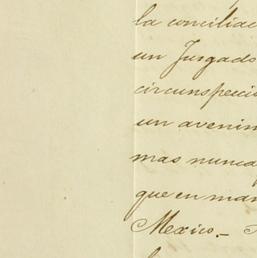 la conciliac
un Juzgado
circunspecció
un avenim
mas nunca
que en man
Mexico.-